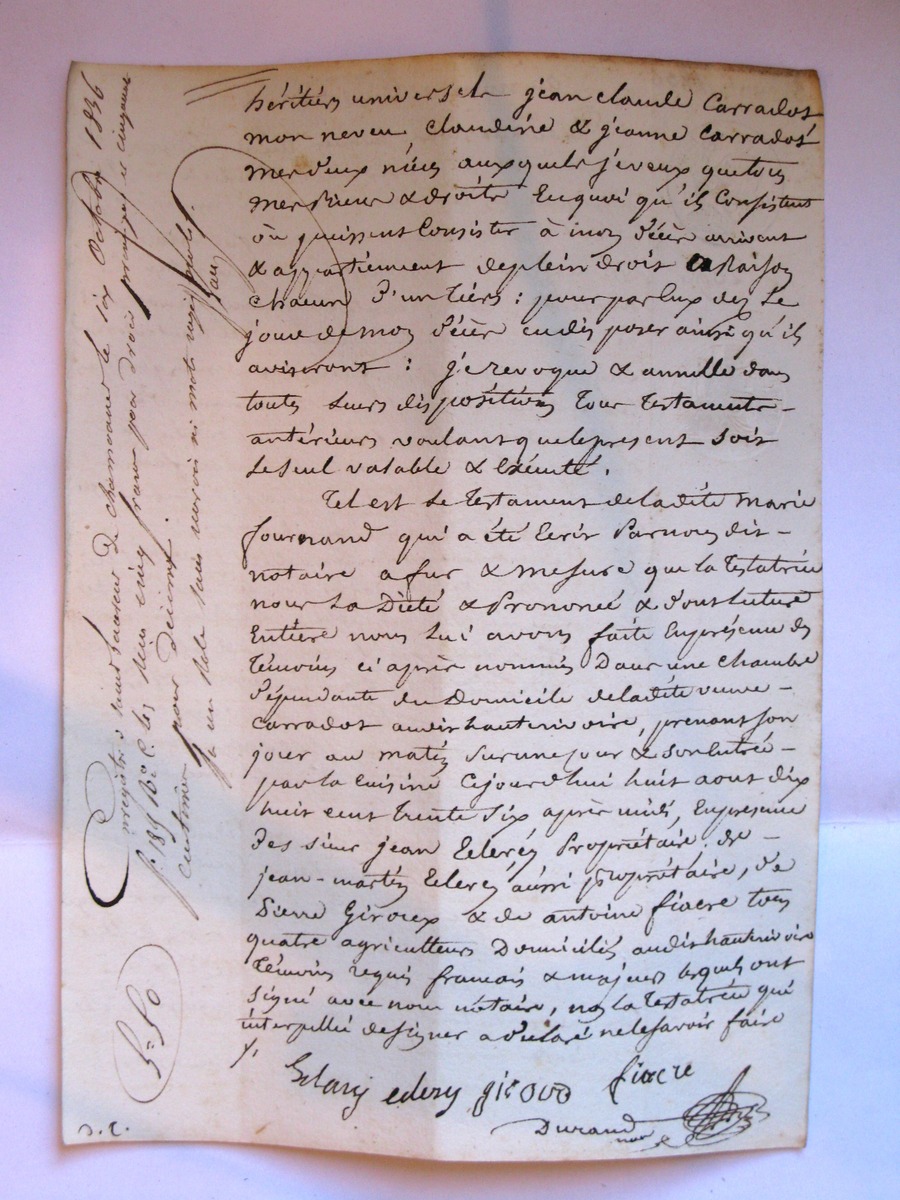 héritiers universels jean claude Carradot
mon neveu claudine & jeanne Carradot
mes deux nièces auxquels je veux que tous
mes biens & droits En quoi qu'ils Consistent
où puissent Consister à mon décès arrivent
& appartiennent de plein droit a Raison
chacun d'un tiers : pour par Eux dès Le
jour de mon décès en disposer ainsi qu'ils
aviseront : je revoque & annulle dans
toutes Leurs dispositions Tous Testaments
antérieurs voulant que le present soit
Le seul valable & Exécuté.
Tel est Le Testament de ladite Marie
fournand qui a été Ecrit Par nous dit
notaire a fur & mesure que la Testatrice
nous La Dicté & Prononcé & dont Lecture
Entière nous Lui avons faite En présence des
Témoins ci après nommés Dans une chambre
dépendante du Domicile de ladite veuve
Carradot audit hauterivoire, prenant son
jour au matin sur une cour & son Entrée
par la cuisine Cejourd'hui huit aout dix
huit cent trente Six après midi, En présence
des sieur jean Propriétaire, de
jean-martin aussi propriétaire, de
Pierre Giroux & de antoine fiacre tous
quatre agriculteurs Domiciliés audit hauterivoire
Témoins requis francais & majeurs lesquels ont
signé avec nous notaire, non la Testatrice qui
interpellée de signer a déclaré ne le savoir faire
giroud fiacre
Durand
nore
Enregistré à Saint Laurent de chamousset le six Octobre 1836
f. 189 Ro C. les cinq francs pour droit principal et cinquante
centimes pour décime
un role sans renvoi ni mots rayés
5=50